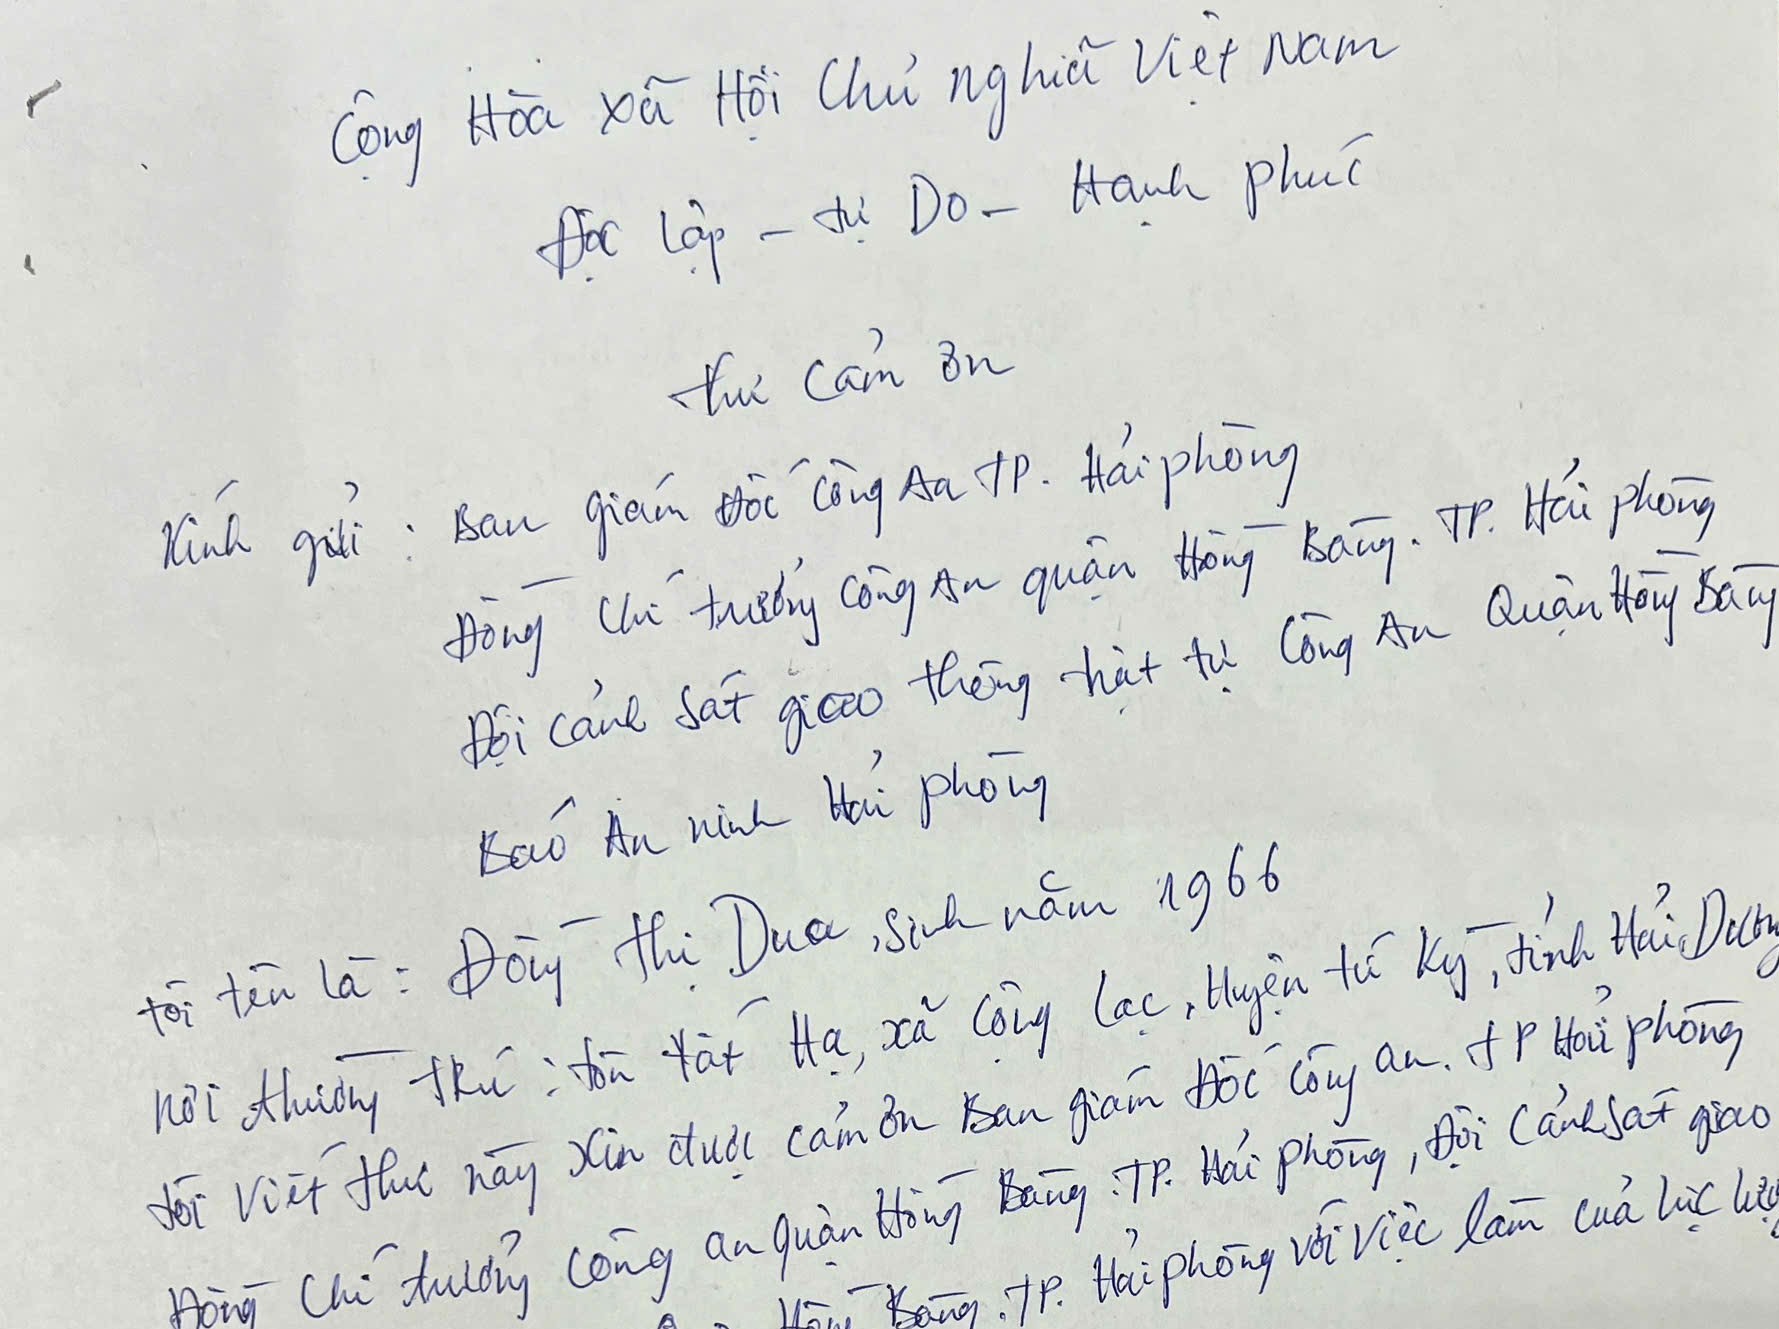 Cộng Hòa xã Hội Chủ nghĩa Việt Nam
Độc lập - tự Do - Hạnh phúc
thư cảm ơn
Kính gửi : Ban giám đốc Công An TP. Hải phòng
Đồng chí trưởng Công An quận Hồng Bàng. TP. Hải phòng
Đội cảnh sát giao thông trật tự Công An Quận Hồng Bàng
Báo An ninh Hải phòng
tôi tên là : Đồng Thị Dua, sinh năm 1966
nơi thường trú : tôn tất Hạ, xã Cộng Lạc, Huyện tứ Kỳ, tỉnh Hải Dương
tôi viết thư này xin được cảm ơn Ban giám đốc Công an. TP Hải phòng
Đồng chí trưởng công an quận Hồng Bàng. TP. Hải phòng, Đội Cảnh sát giao
Hồng Bàng. TP. Hải phòng với việc làm của lực